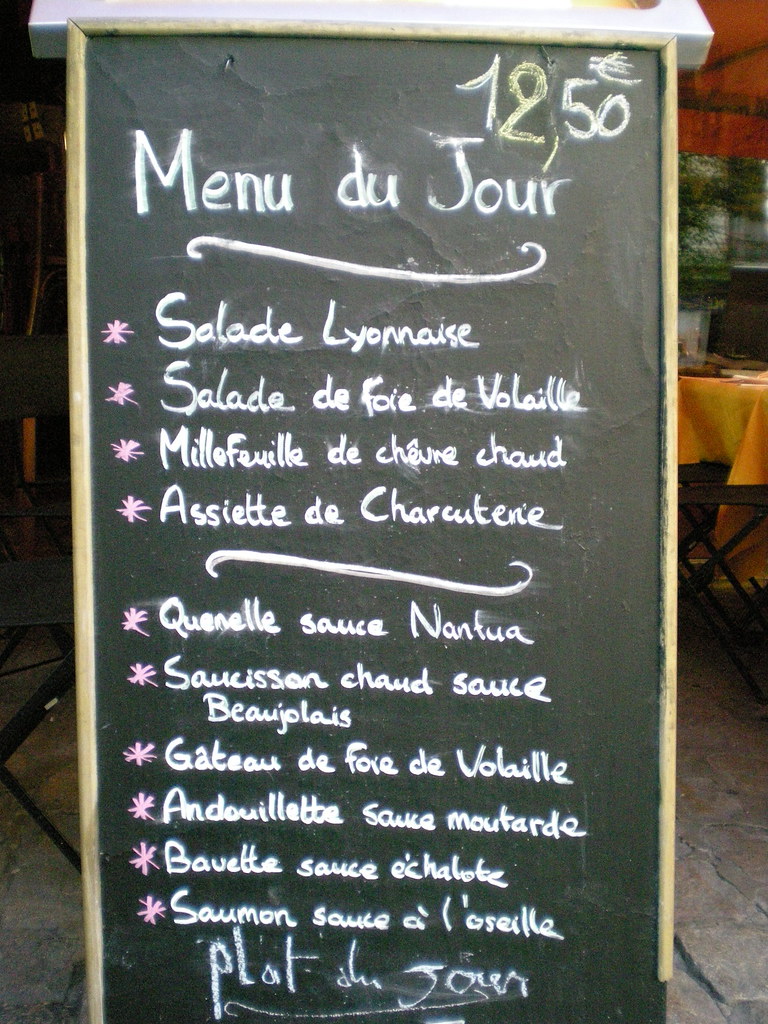 12,50 €
Menu du Jour
* Salade Lyonnaise
* Salade de foie de Volaille
* Millefeuille de chêvre chaud
* Assiette de Charcuterie
* Quenelle sauce Nantua
* Saucisson chaud sauce
Beaujolais
* Gâteau de foie de Volaille
* Andouillette sauce moutarde
* Bavette sauce échalote
* Saumon sauce à l'oseille
plat du jour